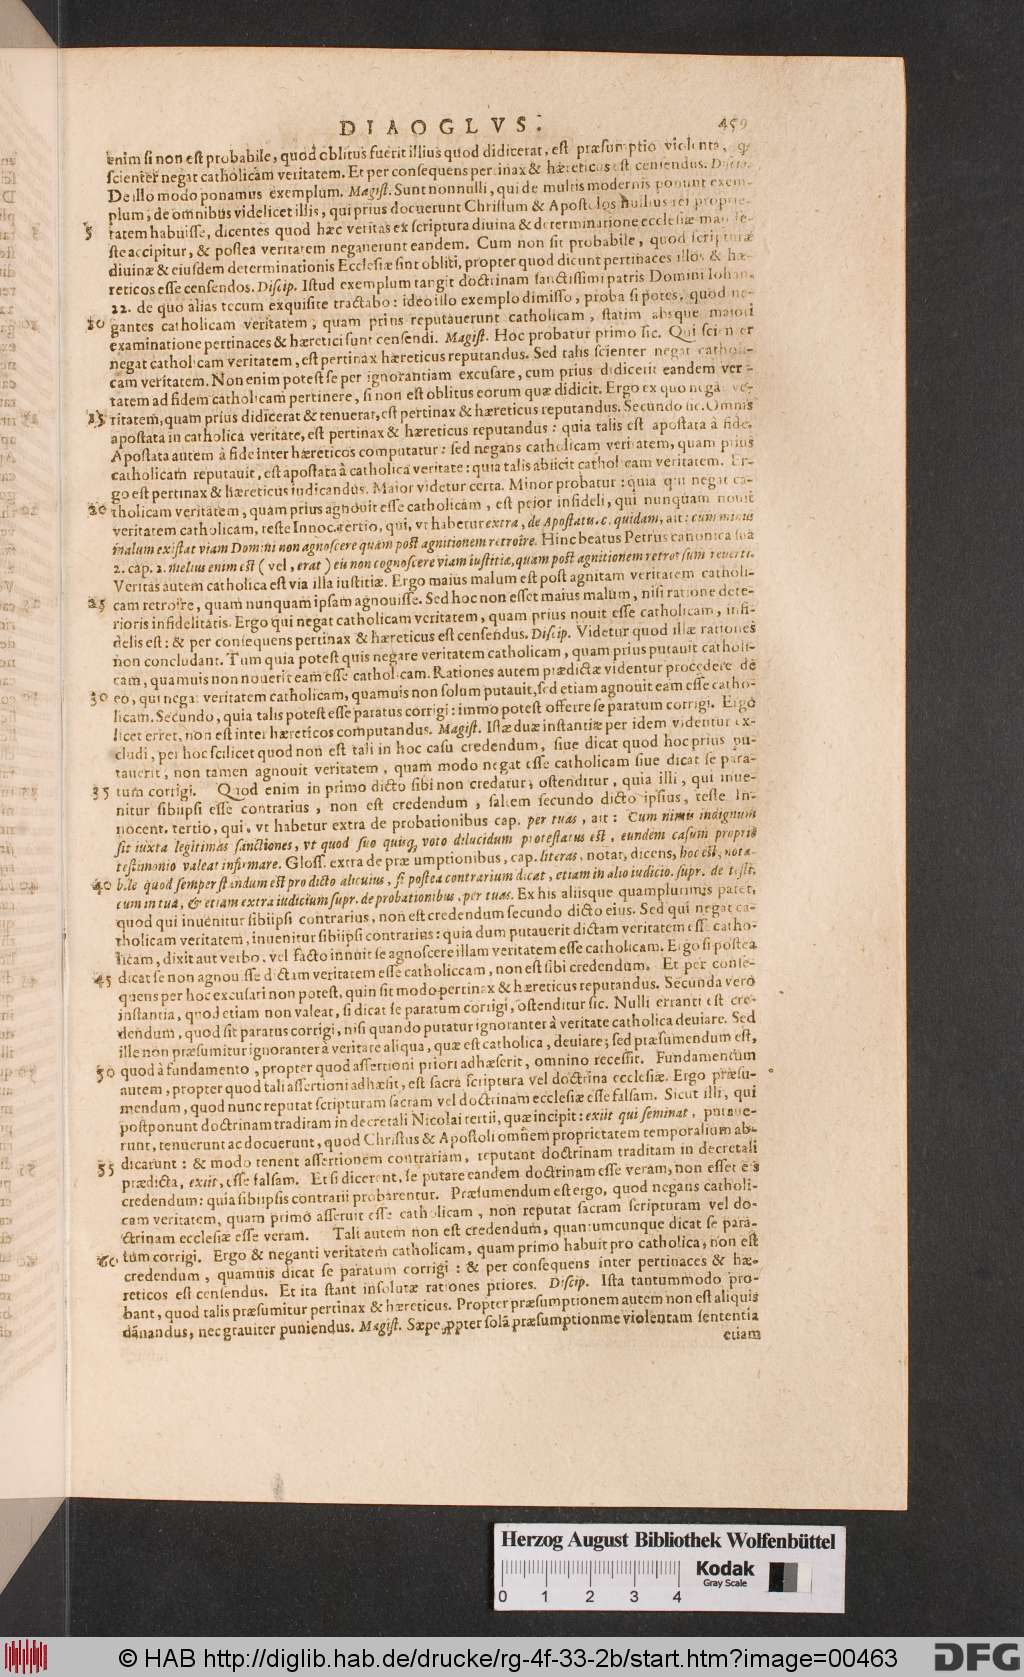 DIAOGLVS. 459
enim si non est probabile, quod oblitus fuerit illius quod didicerat, est præsumptio violenta, ꝙ
scienter negat catholicam veritatem. Et per consequens pertinax & hæreticus est censendus. Discip.
De illo modo ponamus exemplum. Magist. Sunt nonnulli, qui de multis modernis ponunt exem-
plum, de omnibus videlicet illis, qui prius docuerunt Christum & Apostolos nullius rei proprie-
5 tatem habuisse, dicentes quod hæc veritas ex scriptura diuina & determinatione ecclesiæ manife-
ste accipitur, & postea veritatem negauerunt eandem. Cum non sit probabile, quod scripturæ
diuinæ & eiusdem determinationis Ecclesiæ sint obliti, propter quod dicunt pertinaces illos & hæ-
reticos esse censendos. Discip. Istud exemplum tangit doctrinam sanctissimi patris Domini Iohan.
22. de quo alias tecum exquisite tractabo: ideo illo exemplo dimisso, proba si potes, quod ne-
10 gantes catholicam veritatem, quam prius reputauerunt catholicam, statim absque maiori
examinatione pertinaces & hæretici sunt censendi. Magist. Hoc probatur primo sic. Qui scienter
negat catholicam veritatem, est pertinax hæreticus reputandus. Sed talis scienter negat catholi-
cam veritatem. Non enim potest se per ignorantiam excusare, cum prius didicerit eandem veri-
tatem ad fidem catholicam pertinere, si non est oblitus eorum quæ didicit. Ergo ex quo negat ve-
15 ritatem, quam prius didicerat & tenuerat, est pertinax & hæreticus reputandus. Secundo sic. Omnis
apostata in catholica veritate, est pertinax & hæreticus reputandus: quia talis est apostata à fide.
Apostata autem à fide inter hæreticos computatur: sed negans catholicam veritatem, quam prius
catholicam reputauit, est apostata à catholica veritate: quia talis abiicit catholicam veritatem. Er-
go est pertinax & hæreticus iudicandus. Maior videtur certa. Minor probatur: quia qui negat ca-
20 tholicam veritatem, quam prius agnouit esse catholicam, est peior infideli, qui nunquam nouit
veritatem catholicam, teste Innoc. tertio, qui, vt habetur extra, de Apostatis. c. quidam, ait: cum minus
malum existat viam Domini non agnoscere quam post agnitionem retroire. Hinc beatus Petrus canonica sua
2. cap. 2. melius enim est (vel, erat) eis non cognoscere viam iustitiæ, quam post agnitionem retrorsum reuerti.
Veritas autem catholica est via illa iustitiæ. Ergo maius malum est post agnitam veritatem catholi-
25 cam retroire, quam nunquam ipsam agnouisse. Sed hoc non esset maius malum, nisi ratione dete-
rioris infidelitatis. Ergo qui negat catholicam veritatem, quam prius nouit esse catholicam, infi-
delis est: & per consequens pertinax & hæreticus est censendus. Discip. Videtur quod illæ rationes
non concludant. Tum quia potest quis negare veritatem catholicam, quam prius putauit catholi-
cam, quamuis non nouerit eam esse catholicam. Rationes autem prædictæ videntur procedere de
30 eo, qui negat veritatem catholicam, quamuis non solum putauit, sed etiam agnouit eam esse catho-
licam. Secundo, quia talis potest esse paratus corrigi: immo potest offerre se paratum corrigi. Ergo
licet erret, non est inter hæreticos computandus. Magist. Istæ duæ instantiæ per idem videntur ex-
cludi, per hoc scilicet quod non est tali in hoc casu credendum, siue dicat quod hoc prius pu-
tauerit, non tamen agnouit veritatem, quam modo negat esse catholicam siue dicat se para-
35 tum corrigi. Quod enim in primo dicto sibi non credatur, ostenditur, quia illi, qui inue-
nitur sibiipsi esse contrarius, non est credendum, saltem secundo dicto ipsius, teste In-
nocent. tertio, qui, vt habetur extra de probationibus cap. per tuas, ait: Cum nimis indignum
sit iuxta legitimas sanctiones, vt quod suo quisq; voto dilucidum protestatus est, eundem casum proprio
testimonio valeat infirmare. Gloss. extra de præsumptionibus, cap. literas, notat, dicens, hoc est, nota-
40 bile quod semper standum est pro dicto alicuius, si postea contrarium dicat, etiam in alio iudicio. supr. de testi.
cum in tua, & etiam extra iudicium supr. de probationibus, per tuas. Ex his aliisque quamplurimis patet,
quod qui inuenitur sibiipsi contrarius, non est credendum secundo dicto eius. Sed qui negat ca-
tholicam veritatem, inuenitur sibiipsi contrarius: quia dum putauerit dictam veritatem esse catho-
licam, dixit aut verbo, vel facto innuit se agnoscere illam veritatem esse catholicam. Ergo si postea
45 dicat se non agnouisse dictam veritatem esse catholiccam, non est sibi credendum. Et per conse-
quens per hoc excusari non potest, quin sit modo pertinax & hæreticus reputandus. Secunda vero
instantia, quod etiam non valeat, si dicat se paratum corrigi, ostenditur sic. Nulli erranti est cre-
dendum, quod sit paratus corrigi, nisi quando putatur ignoranter à veritate catholica deuiare. Sed
ille non præsumitur ignoranter à veritate aliqua, quæ est catholica, deuiare; sed præsumendum est,
50 quod à fundamento, propter quod assertioni priori adhæserit, omnino recessit. Fundamentum
autem, propter quod tali assertioni adhæsit, est sacra scriptura vel doctrina ecclesiæ. Ergo præsu-
mendum, quod nunc reputat scripturam sacram vel doctrinam ecclesiæ esse falsam. Sicut illi, qui
postponunt doctrinam traditam in decretali Nicolai tertii, quæ incipit: exiit qui seminat, putaue-
runt, tenuerunt ac docuerunt, quod Christus & Apostoli omnem proprietatem temporalium ab-
55 dicarunt: & modo tenent assertionem contrariam, reputant doctrinam traditam in decretali
prædicta, exiit, esse falsam. Et si dicerent, se putare eandem doctrinam esse veram, non esset eis
credendum: quia sibiipsis contrarii probarentur. Præsumendum est ergo, quod negans catholi-
cam veritatem, quam primo asseruit esse catholicam, non reputat sacram scripturam vel do-
ctrinam ecclesiæ esse veram. Tali autem non est credendum, quantumcunque dicat se para-
60 tum corrigi. Ergo & neganti veritatem catholicam, quam primo habuit pro catholica, non est
credendum, quamuis dicat se paratum corrigi: & per consequens inter pertinaces & hæ-
reticos est censendus. Et ita stant insolutæ rationes priores. Discip. Ista tantummodo pro-
bant, quod talis præsumitur pertinax & hæreticus. Propter præsumptionem autem non est aliquis
dānandus, nec grauiter puniendus. Magist. Sæpe ꝓpter solā præsumptionme violentam sententia
etiam
Herzog August Bibliothek Wolfenbüttel
Kodak
Gray Scale
0 1 2 3 4
© HAB http://diglib.hab.de/drucke/rg-4f-33-2b/start.htm?image=00463
DFG